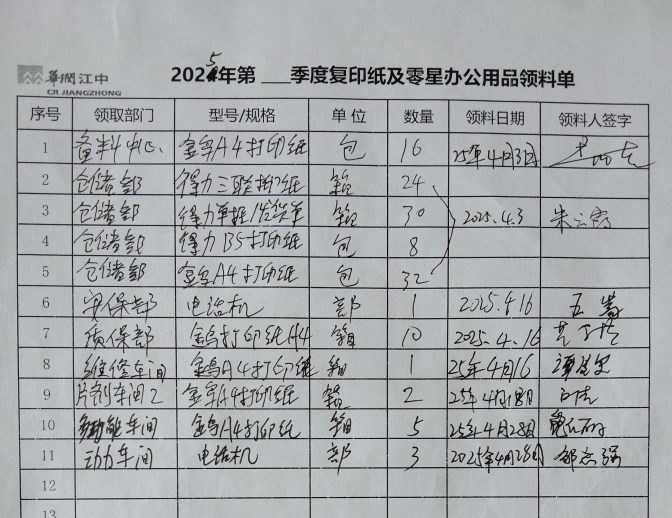 華潤江中
CR JIANGZHONG
2025年第 季度复印纸及零星办公用品领料单
序号 领取部门 型号/规格 单位 数量 领料日期 领料人签字
1 备料中心 金鸟A4打印纸 包 16 25年4月3日
2 仓储部 得力三联打印纸 箱 24
3 仓储部 得力单据/发货单 箱 30 2025.4.3
4 仓储部 得力B5打印纸 包 8
5 仓储部 金鸟A4打印纸 包 32
6 安保部 电话机 部 1 2025.4.16
7 质保部 金鸟打印纸A4 箱 10 2025.4.16
8 维修车间 金鸟A4打印纸 箱 1 25年4月16
9 片剂车间2 金鸟A4打印纸 箱 2 25年4月18日
10 多功能车间 金鸟A4打印纸 箱 5 25年4月28日
11 动力车间 电话机 部 3 2025年4月28日 邹志强
12
13